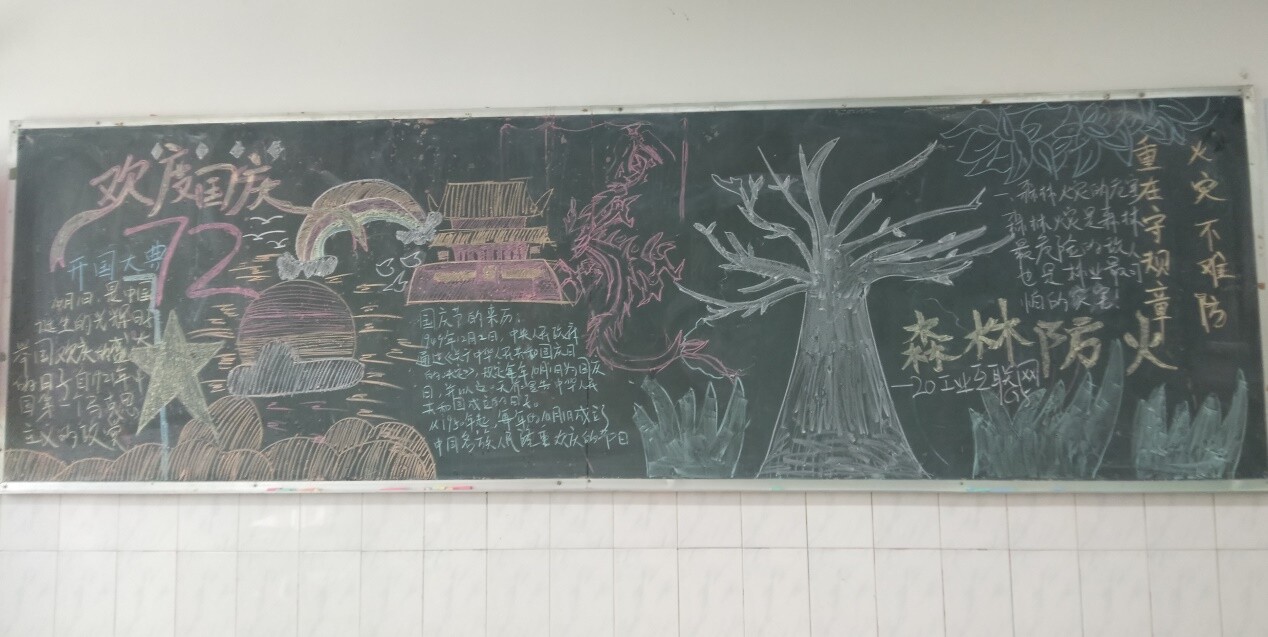 欢度国庆
72
开国大典
10月1日,是中国
诞生的光辉时
举国欢庆
国第一
主义的
国庆节的来历:
1949年12月2日,中央人民政府
通过《关于中华人民共和国国庆日
的决定》,规定每年10月1日为国庆
日,并以这一天作为宣告中华人民
共和国成立的日子。
从1950年起,每年的10月1日成了
中国各族人民隆重欢庆的节日
火灾不难防
重在守规章
一森林火灾的危害
森林火灾是森林
最危险的敌人
也是林业最可
怕的灾害!
森林防火
—20工业互联网